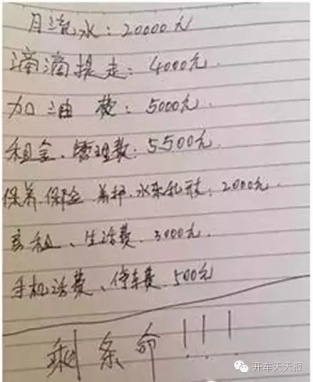 月流水：20000元
滴滴提走：4000元.
加油费：5000元.
租金、管理费：5500元
保养.保险. 水果礼形：2000元.
房租、生活费.3000元.
手机话费、停车费.500元
剩条命!!!
开车天天报